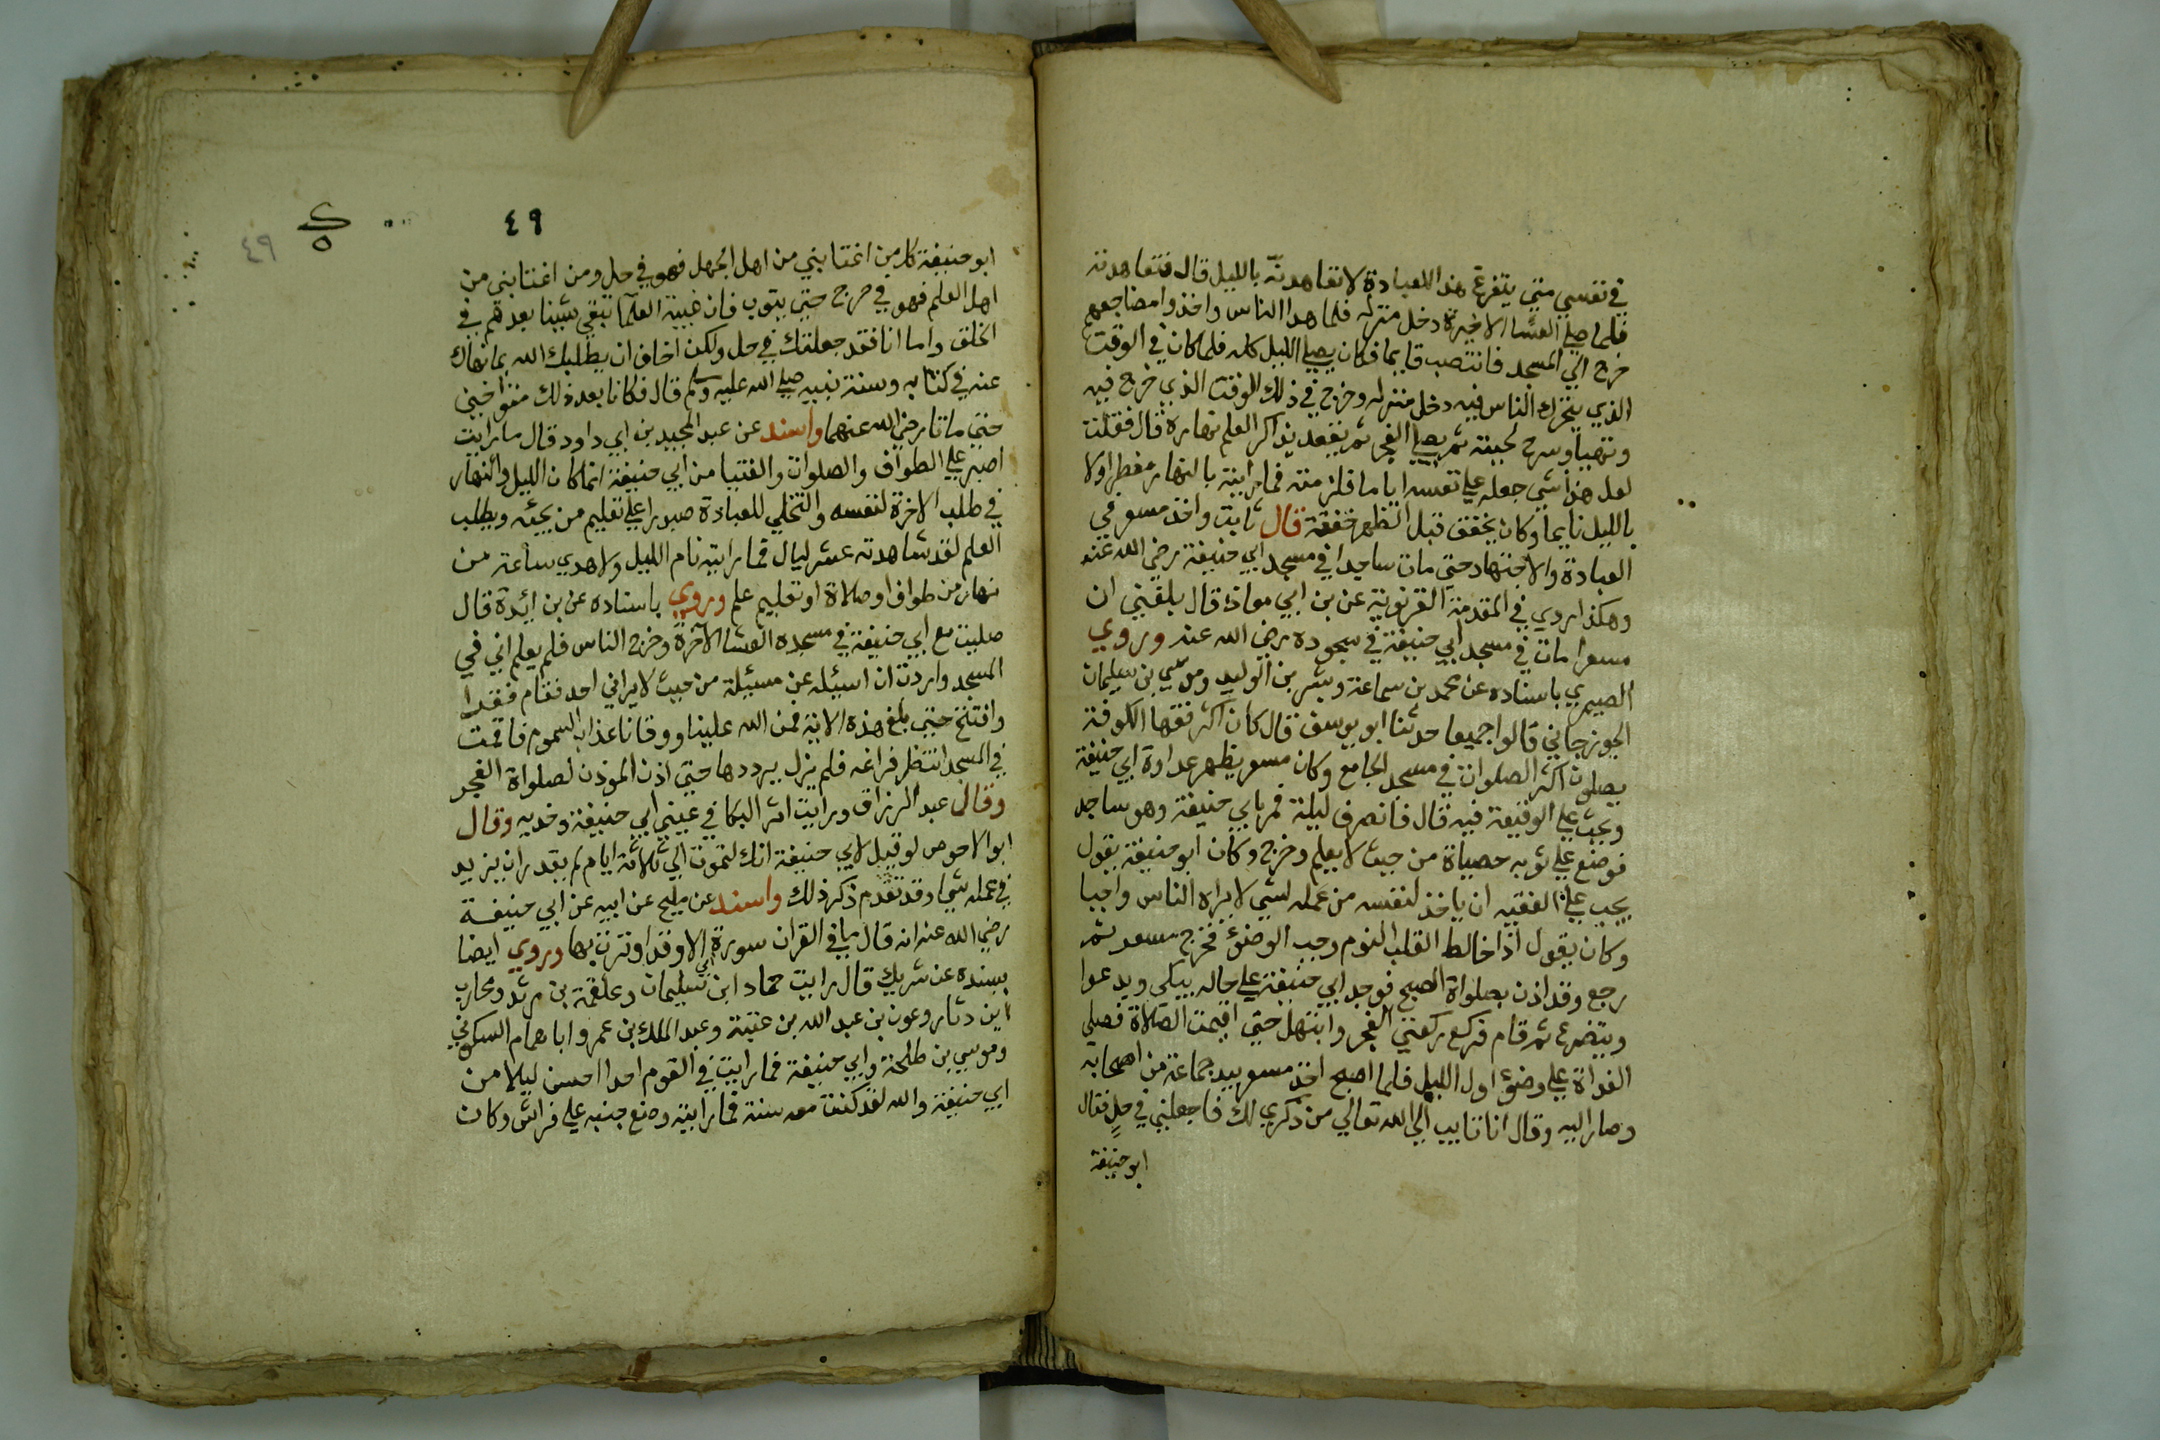 في نفسي متي يتفرغ هذا للعبادة لاتعاهدنه بالليل قال فتعاهدته
فلما صلي العشاء الاخيرة دخل منزله فلما هدا الناس واخذوا مضاجعهم
خرج الي المسجد فانتصب قايما فكان يصلي الليل كله فلما كان في الوقت
الذي يتحرك الناس فيه دخل منزله وخرج في ذلك الوقت الذي خرج فيه
وتهيأ وسرح لحيته ثم يصلي الفجر ثم يقعد يذاكر العلم نهاره قال فقلت
لعل هذا شي جعله علي نفسه اياما فلزمته فما رايته بالنهار مفطرا ولا
بالليل نايما وكان يخفق قبل الظهر خفقة قال ثابت واخذ مسعر في
العبادة والاجتهاد حتي مات ساجدا في مسجد ابي حنيفة رضي الله عنه
وهكذا روي في المقدمة الغزنوية عن بن ابي معاذ قال بلغني ان
مسعرا مات في مسجد ابي حنيفة في سجوده رضي الله عنه وروي
الصيمري باسناده عن محمد بن سماعة وبشر بن الوليد وموسي بن سليمان
الجوزجاني قالوا جميعا حدثنا ابو يوسف قال كان اكثر فقها الكوفة
يصلون اكثر الصلوات في مسجد الجامع وكان مسعر يظهر عداوة ابي حنيفة
علي الوقيعة فيه قال فانصرف ليلة فمر بابي حنيفة وهو ساجد
فوضع علي ثوبه حصياة من حيث لا يعلم وخرج وكان ابو حنيفة يقول
يجب علي الفقيه ان ياخذ لنفسه من عمله لشي لا يراه الناس واجبا
وكان يقول اذا خالط القلب النوم وجب الوضؤ فخرج مسعر ثم
رجع وقد اذن بصلواة الصبح فوجد ابي حنيفة علي حاله يبكي ويدعوا
ويتضرع ثم قام فركع ركعتي الفجر وابتهل حتي اقيمت الصلاة فصلي
الغداة علي وضؤ اول الليل فلما اصبح اخذ مسعر بيد جماعة من اصحابه
وصار اليه وقال انا تايب الي الله تعالي من ذكري لك فاجعلني في حل فقال
ابو حنيفة
٤٩
٤٩
ابو حنيفة كل من اغتابني من اهل الجهل فهو في حل ومن اغتابني من
اهل العلم فهو في حرج حتي يتوب فان غيبة العلمآ تبقي شينا بعدهم في
الخلق واما انا فقد جعلتك في حل ولكن اخاف ان يطلبك الله بما نهاك
عنه في كتابه وسنة نبيه صلي الله عليه وسلم قال فكانا بعد ذلك متواخيين
حتي ماتا رضي الله عنهما واسند عن عبد المجيد بن ابي داود قال ما رايت
اصبر علي الطواف والصلوات والفتيا من ابي حنيفة انما كان الليل والنهار
في طلب الاخرة لنفسه والتخلي للعبادة صبورا علي تعليم من يجئه ويطلب
العلم لقد شاهدته عشر ليال فما رايته نام الليل ولا هدي ساعة من
نهار من طواف او صلاة او تعليم علم وروي باسناده عن بن ائدة قال
صليت مع ابي حنيفة في مسجده العشا الآخرة وخرج الناس فلم يعلم اني في
المسجد واردت ان اسيئله عن مسيئلة من حيث لا يراني احد فقام فقرا
وافتتح حتي بلغ هذه الاية فمن الله علينا ووقانا عذاب السموم فاقمت
في المسجد انتظر فراغه فلم يزل يرددها حتي اذن الموذن لصلواة الفجر
وقال عبد الرزاق ورايت اثر البكا في عيني ابي حنيفة وخديه وقال
ابو الاحوص لو قيل لابي حنيفة انك لتموت الي ثلاثة ايام لم يقدر ان يزيد
في عمله شيا وقد تقدم ذكر ذلك واسند عن مليح عن ابيه عن ابي حنيفة
رضي الله عنه انه قال ما في القران سورة الا وقد اوترت بها وروي ايضا
بسنده عن شريك قال رايت حماد ابن ابي سليمان وعلقمة بن مرثد ومحارب
ابن دثار وعون بن عبد الله بن عتبة وعبد الملك بن عمر وابا همام السكوني
وموسي بن طلحة وابي حنيفة فما رايت في القوم احدا احسن ليلا من
ابي حنيفة والله لقد كنت معه سنة فما رايته وضع جنبه علي فراش وكان